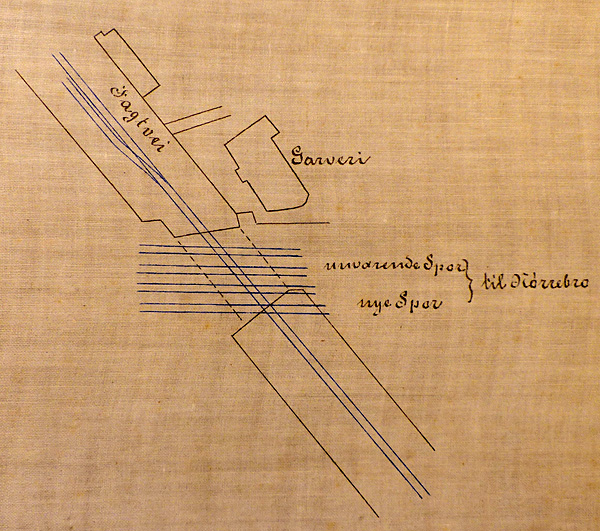 Jagtvei
Garveri
nuværende Spor
nye Spor
til Nörrebro